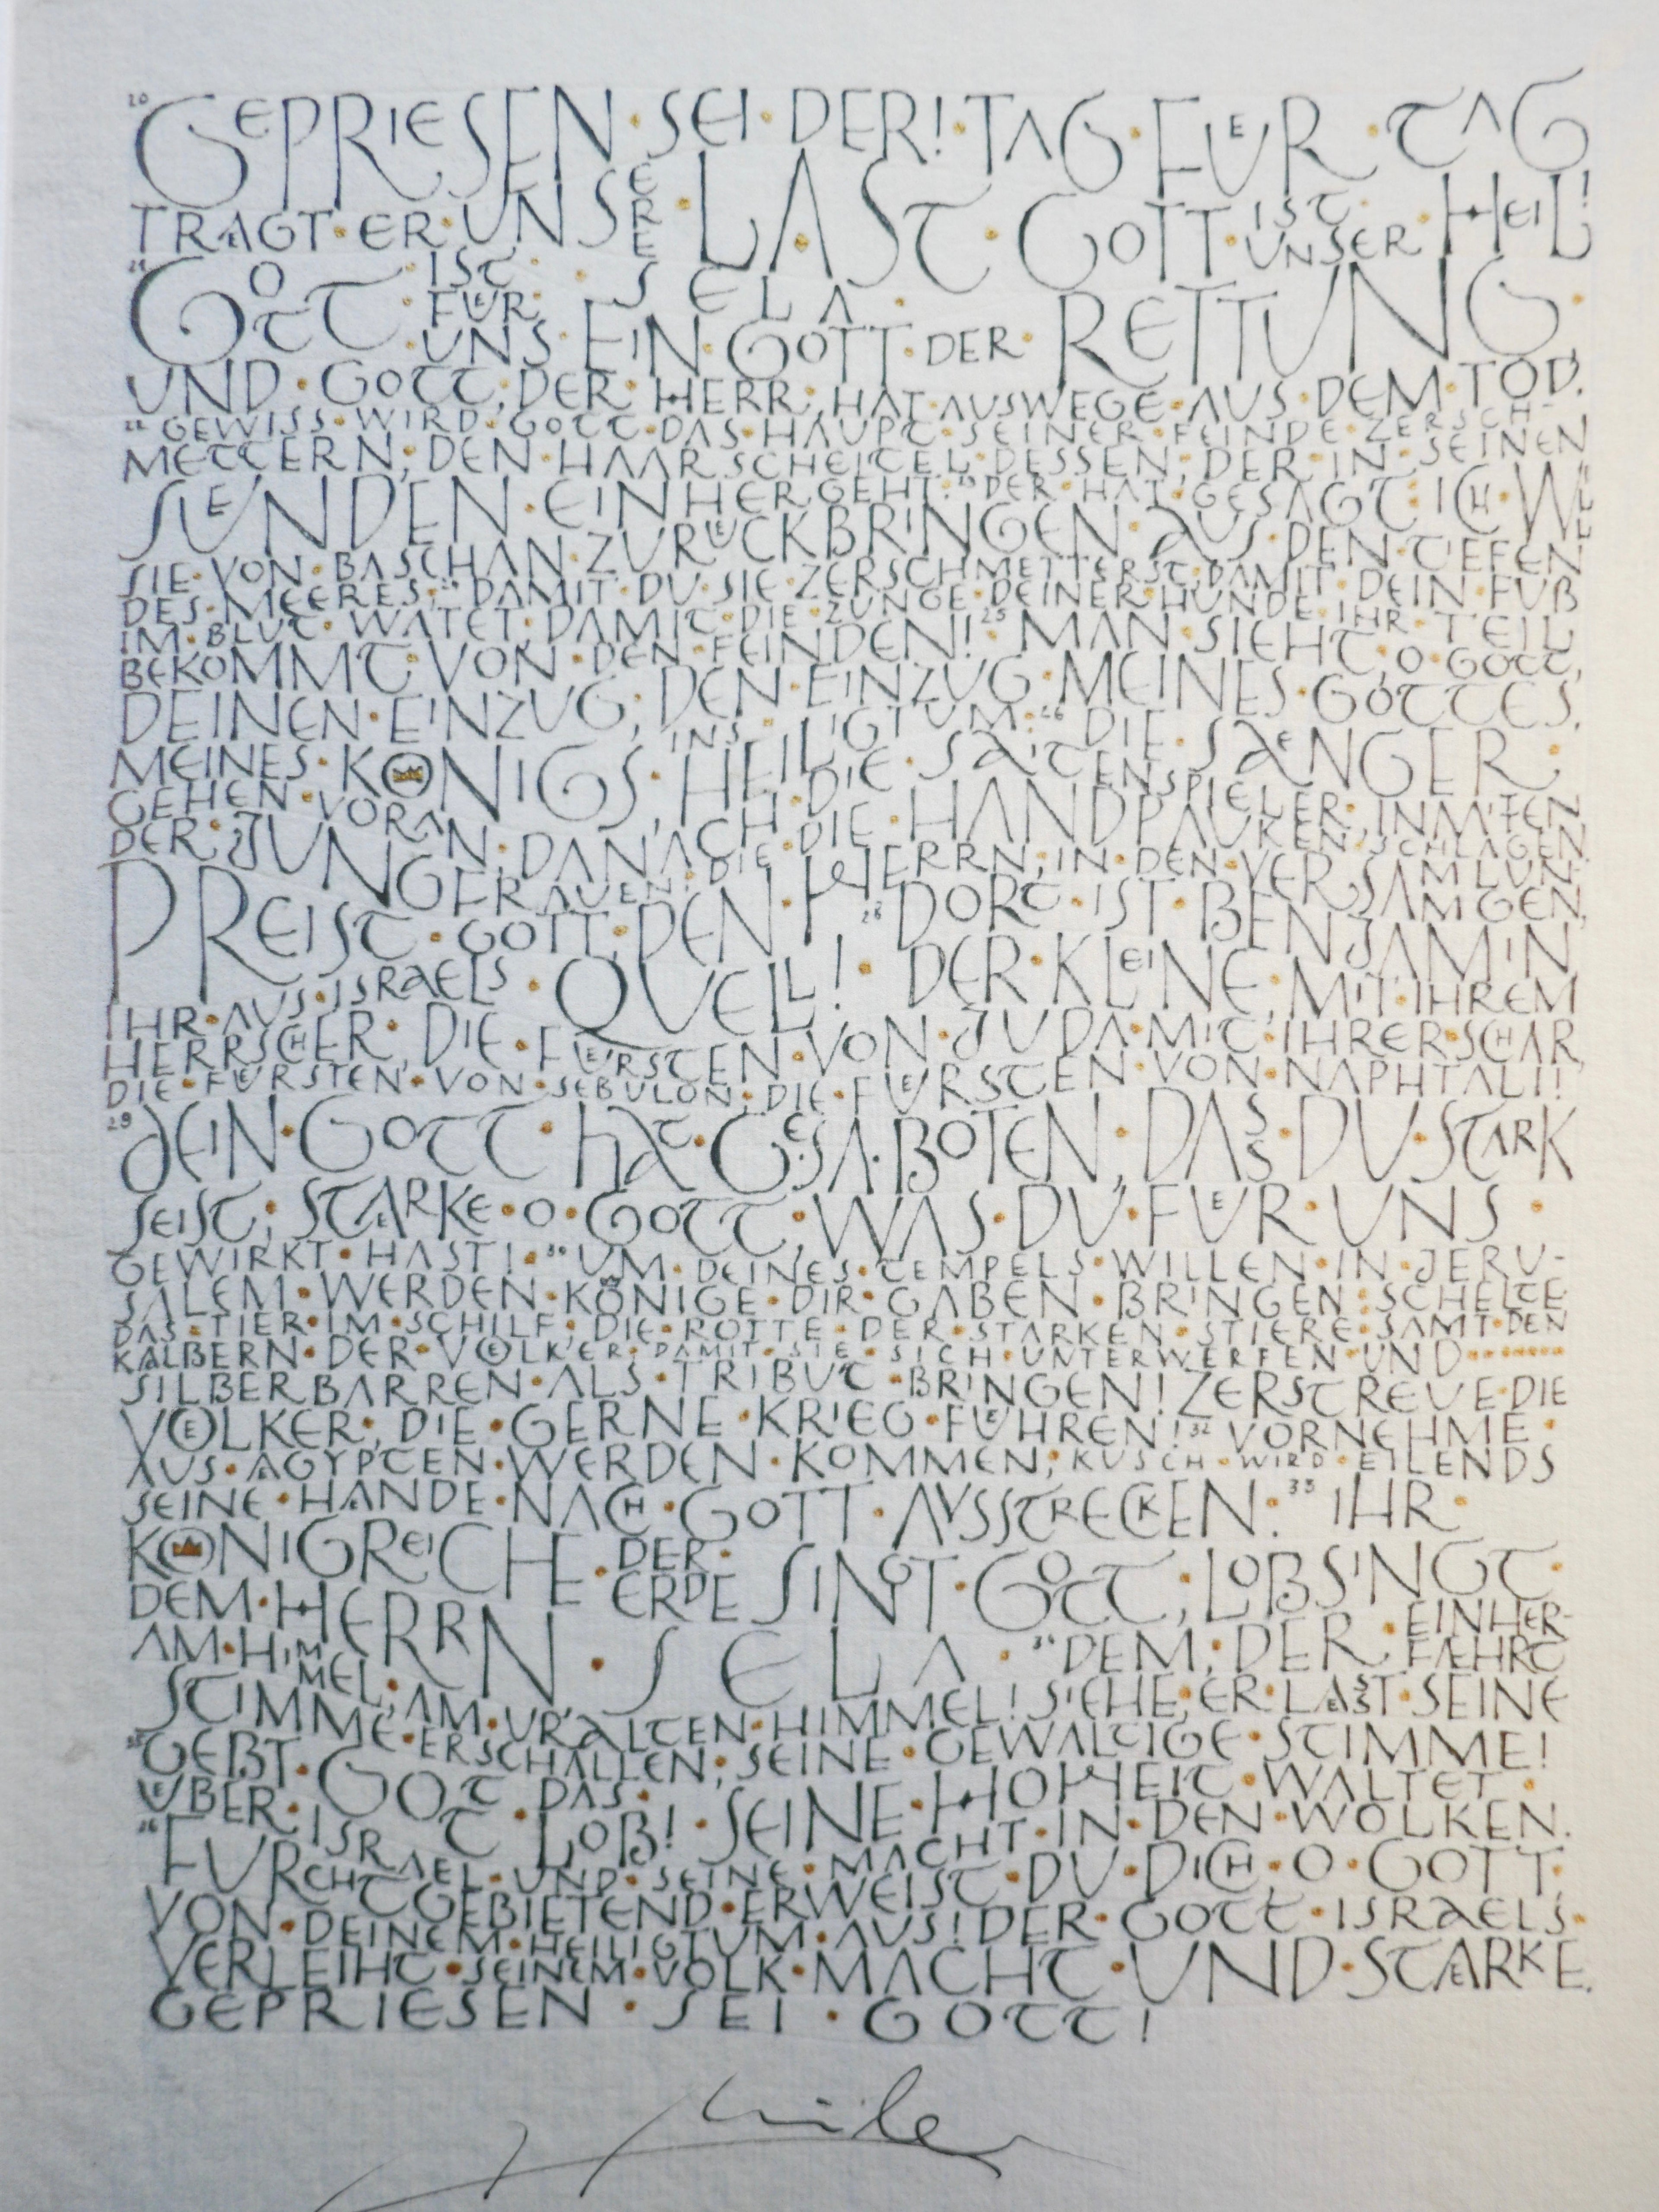 20 GEPRIESEN · SEI · DER! · TAG · FUER · TAG
TRAEGT · ER · UNSERE · LAST · GOTT · IST UNSER HEIL!
SELA ·
21 GOTT · IST · FUER · UNS · EIN · GOTT · DER · RETTUNG ·
UND · GOTT, DER · HERR, HAT · AUSWEGE · AUS · DEM · TOD.
22 GEWISS · WIRD · GOTT · DAS · HAUPT · SEINER · FEINDE · ZERSCH-
METTERN, DEN · HAARSCHEITEL · DESSEN, DER · IN · SEINEN
SUENDEN · EINHERGEHT. 23 DER · HAT · GESAGT · ICH · WILL
SIE · VON · BASCHAN · ZURUECKBRINGEN · AUS · DEN · TIEFEN
DES · MEERES, 24 DAMIT · DU · SIE · ZERSCHMETTERST, DAMIT · DEIN · FUß
IM · BLUT · WATET, DAMIT · DIE · ZUNGE · DEINER · HUNDE · IHR · TEIL
BEKOMMT · VON · DEN · FEINDEN! 25 MAN · SIEHT, O · GOTT,
DEINEN · EINZUG, DEN · EINZUG · MEINES · GOTTES,
MEINES · KÖNIGS, INS · HEILIGTUM. 26 DIE · SAENGER ·
GEHEN · VORAN, DANACH · DIE · SAITENSPIELER, INMITEN
DER · JUNGFRAUEN, DIE · DIE · HANDPAUKEN · SCHLAGEN.
PREIST · GOTT, DEN · HERRN, IN · DEN · VERSAMLUNGEN,
IHR · AUS · ISRAELS · QUELL! 28 DORT · IST · BENJAMIN,
DER · KLEINE, MIT · IHREM
HERRSCHER, DIE · FUERSTEN · VON · JUDA · MIT · IHRER SCHAR,
DIE · FUERSTEN · VON · SEBULON, DIE · FUERSTEN · VON · NAPHTALI!
29 DEIN · GOTT · HAT · GESA · BOTEN, DASS · DU · STARK
SEIST; STAERKE · O · GOTT, WAS · DU · FUER · UNS ·
GEWIRKT · HAST! 30 UM · DEINES · TEMPELS · WILLEN · IN · JERU-
SALEM · WERDEN · KÖNIGE · DIR · GABEN · BRINGEN : SCHELTE
DAS · TIER · IM · SCHILF, DIE · ROTTE · DER · STARKEN · STIERE · SAMT · DEN
KAELBERN · DER · VOELKER, DAMIT · SIE · SICH · UNTERWERFEN · UND
SILBERBARREN · ALS · TRIBUT · BRINGEN! ZERSTREUE · DIE
VOELKER, DIE · GERNE · KRIEG · FUEHREN! 32 VORNEHME ·
AUS · AEGYPTEN · WERDEN · KOMMEN; KUSCH · WIRD · EILENDS
SEINE · HAENDE · NACH · GOTT · AUSSTRECKEN. 33 IHR ·
KÖNIGREICHE · DER · ERDE SINGT · GOTT, LOBSINGT ·
DEM · HERRN · SELA · 34 DEM, DER · EINHER-
FAEHRT
AM · HIMMEL, AM · URALTEN · HIMMEL! SIEHE, ER · LAESST · SEINE
STIMME · ERSCHALLEN, SEINE · GEWALTIGE · STIMME!
35 GEBT · GOTT DAS · LOB! · SEINE · HOHEIT · WALTET ·
UEBER · ISRAEL · UND · SEINE · MACHT · IN · DEN · WOLKEN.
36 FURCHTGEBIETEND · ERWEIST · DU · DICH, O · GOTT,
VON · DEINEM · HEILIGTUM · AUS! DER · GOTT · ISRAELS ·
VERLEIHT · SEINEM · VOLK · MACHT · UND · STAERKE.
GEPRIESEN · SEI · GOTT!